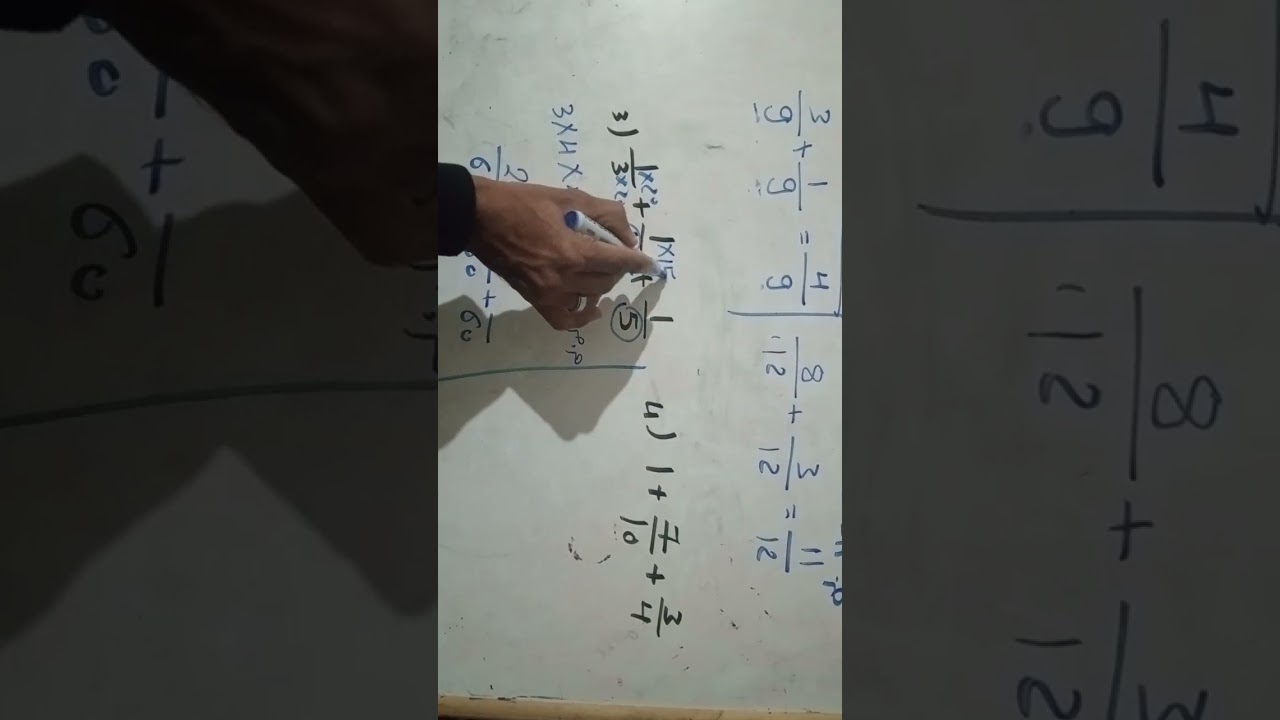 3/9 + 1/9 = 4/9
8/12 + 3/12 = 11/12
3) 1×20/3×2 + 1×15 + 1/5
3×4×
2/6 + /60
4) 1 + 7/10 + 3/4